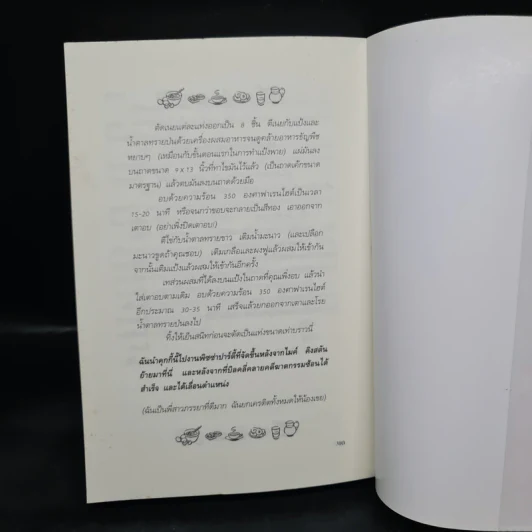 ตัดเนยแต่ละแท่งออกเป็น 8 ชิ้น ตีเนยกับแป้งและ
น้ำตาลทรายป่นด้วยเครื่องผสมอาหารจนดูคล้ายอาหารธัญพืช
หยาบๆ (เหมือนกับขั้นตอนแรกในการทำแป้งพาย) แผ่มันลง
บนถาดขนาด 9 X 13 นิ้วที่ทาไขมันไว้แล้ว (เป็นถาดเค้กขนาด
มาตรฐาน) แล้วตบมันลงบนถาดด้วยมือ
อบด้วยความร้อน 350 องศาฟาเรนไฮต์เป็นเวลา
15-20 นาที หรือจนกว่าขอบจะกลายเป็นสีทอง เอาออกจาก
เตาอบ (อย่าเพิ่งปิดเตาอบ!)
ตีไข่กับน้ำตาลทรายขาว เติมน้ำมะนาว (และเปลือก
มะนาวขูดถ้าคุณชอบ) เติมเกลือและผงฟูแล้วผสมให้เข้ากัน
จากนั้นเติมแป้งแล้วผสมให้เข้ากันอีกครั้ง
เทส่วนผสมที่ได้ลงบนแป้งในถาดที่คุณเพิ่งอบ แล้วนำ
ใส่เตาอบตามเดิม อบด้วยความร้อน 350 องศาฟาเรนไฮต์
อีกประมาณ 30-35 นาที เสร็จแล้วยกออกจากเตาและโรย
น้ำตาลทรายป่นลงไป
ทิ้งให้เย็นสนิทก่อนจะตัดเป็นแท่งขนาดเท่าบราวนี่
ฉันนำคุกกี้นี้ไปงานพิซซ่าปาร์ตี้ที่จัดขึ้นหลังจากไมค์ คิงสตัน
ย้ายมาที่นี่ และหลังจากที่บิลคลี่คลายคดีฆาตกรรมซ้อนได้
สำเร็จ และได้เลื่อนตำแหน่ง
(ฉันเป็นพี่สาวภรรยาที่ดีมาก ฉันยกเครดิตทั้งหมดให้น้องเขย)